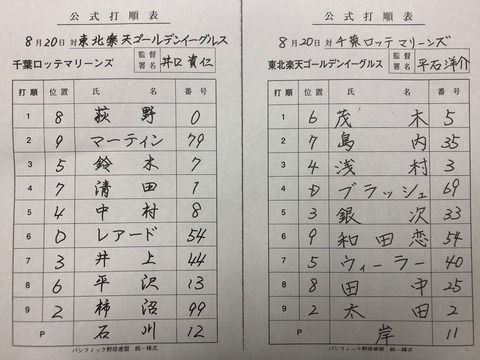 公式打順表
8月20日 対 東北楽天ゴールデンイーグルス
千葉ロッテマリーンズ 監督署名 井口資仁
打順 位置 氏名 番号
1 8 荻野 0
2 9 マーティン 79
3 5 鈴木 7
4 7 清田 1
5 4 中村 8
6 D レアード 54
7 3 井上 44
8 6 平沢 13
9 2 柿沼 99
P 石川 12
パシフィック野球連盟 統一様式
公式打順表
8月20日 対 千葉ロッテマリーンズ
東北楽天ゴールデンイーグルス 監督署名 平石洋介
打順 位置 氏名 番号
1 6 茂木 5
2 7 島内 35
3 4 浅村 3
4 D ブラッシュ 69
5 3 銀次 33
6 9 和田恋 54
7 5 ウィーラー 40
8 8 田中 25
9 2 太田 2
P 岸 11
パシフィック野球連盟 統一様式